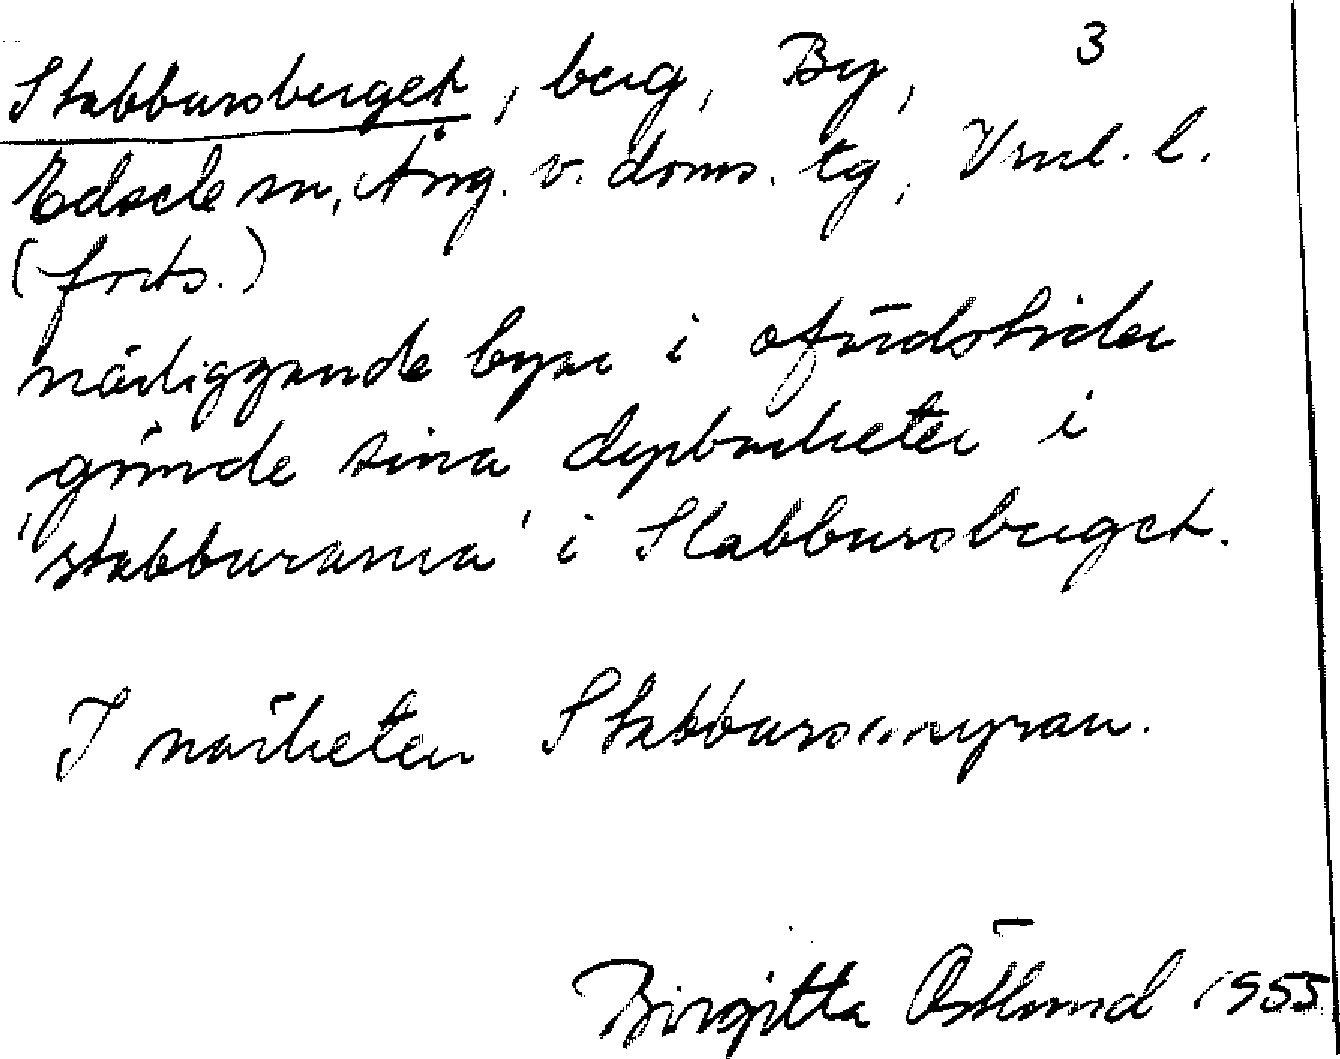 3
Stabbursberget, berg, By,
Edsele sn, Ång. v. doms. tg, Vnl. l.
(forts.)
närliggande byar i ofärdstider
gömde sina dyrbarheter i
'stabburarna' i Stabbursberget.
I närheten Stabbursmyran.
Birgitta Östlund 1955